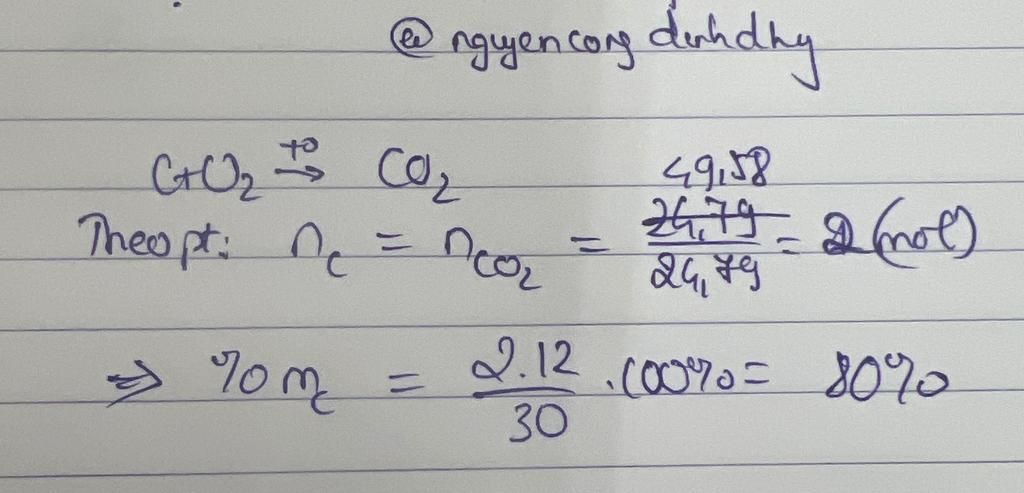 @ nguyencongdinhdhy
C+O₂ →t⁰ CO₂
Theo pt: n_C = n_CO₂ = 49,58/24,79 = 2 (mol)
⇒ %m_C = 2.12/30 .100% = 80%